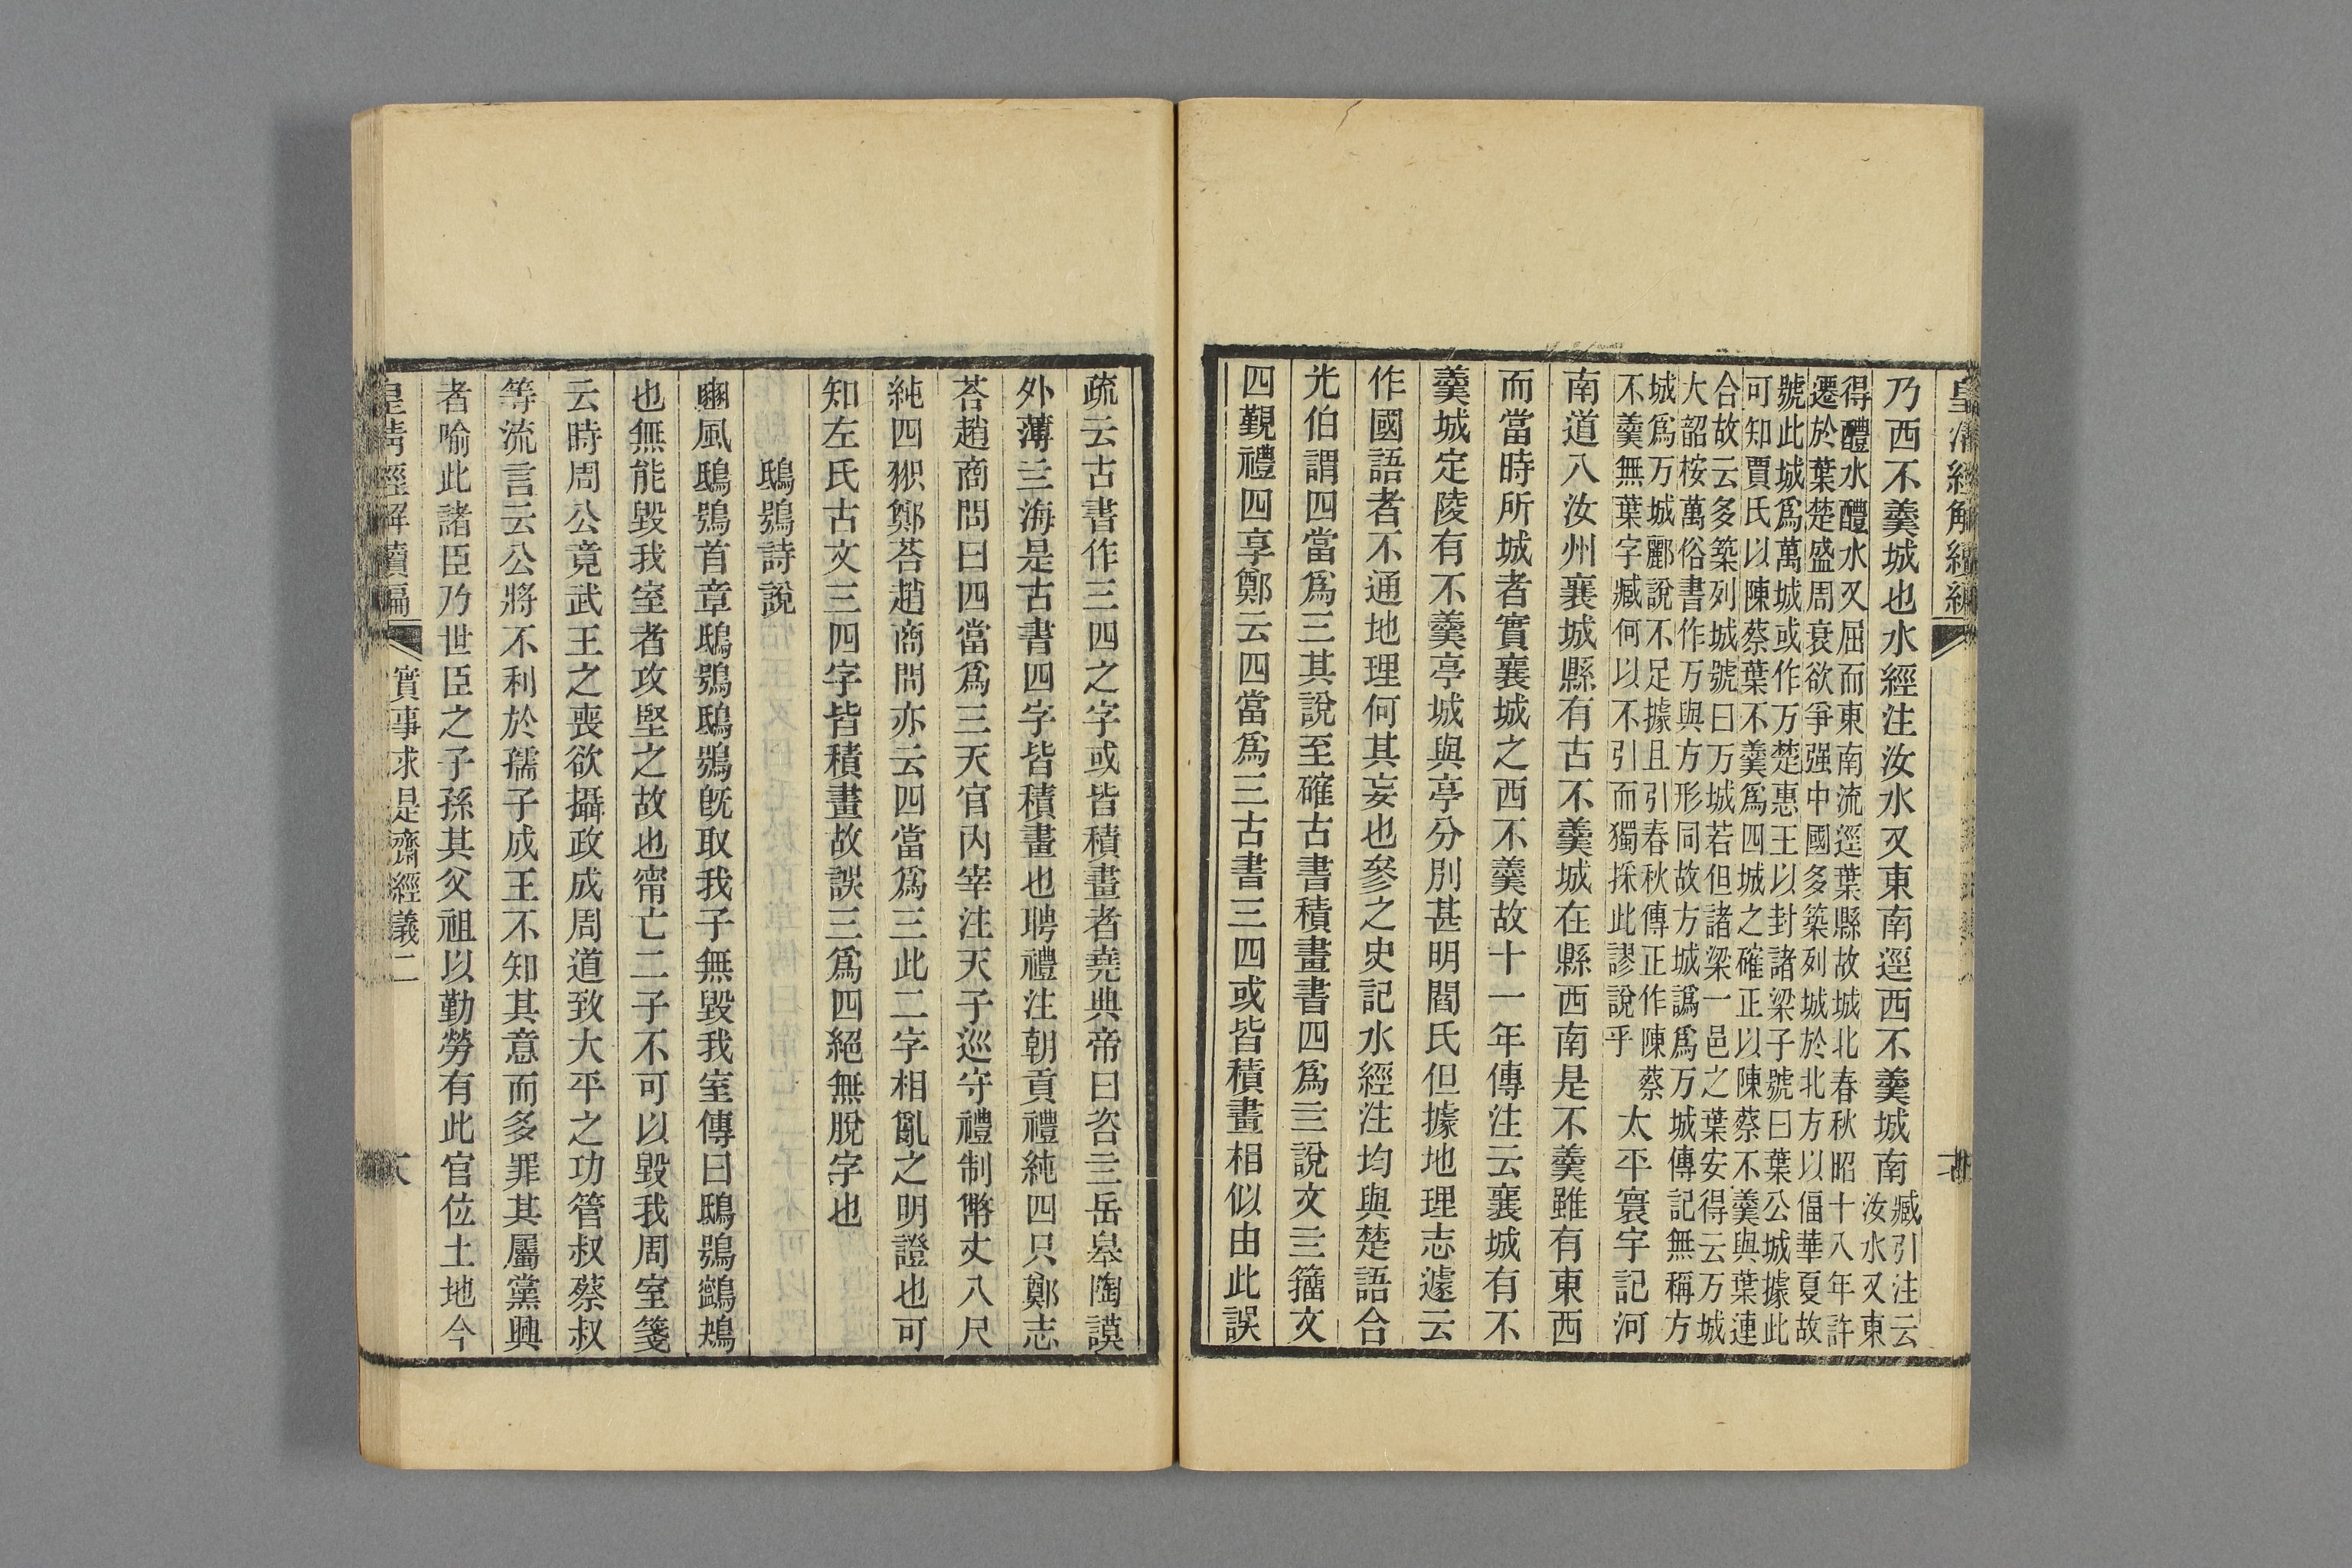 皇清經解續編
乃西不羹城也水經注汝水又東南逕西不羹城南
臧引注云
汝水又東
得醴水醴水又屈而東南流逕葉縣故城北春秋昭十八年許
遷於葉楚盛周衰欲爭强中國多築列城於北方以偪華夏故
號此城爲萬城或作万楚惠王以封諸梁子號曰葉公城據此
可知賈氏以陳蔡葉不羹爲四城之確正以陳蔡不羹與葉連
合故云多築列城號曰万城若但諸梁一邑之葉安得云万城
大詔桉萬俗書作万與方形同故方城譌爲万城傳記無稱方
城爲万城酈說不足據且引春秋傳正作陳蔡
不羹無葉字臧何以不引而獨採此謬說乎
太平寰宇記河
南道八汝州襄城縣有古不羹城在縣西南是不羹雖有東西
而當時所城者實襄城之西不羹故十一年傳注云襄城有不
羹城定陵有不羹亭城與亭分別甚明閻氏但據地理志遽云
作國語者不通地理何其妄也參之史記水經注均與楚語合
光伯謂四當爲三其說至確古書積畫書四爲亖說文亖籀文
四覲禮四享鄭云四當爲三古書三四或皆積畫相似由此誤
疏云古書作三四之字或皆積畫者堯典帝曰咨亖岳皋陶謨
外薄亖海是古書四字皆積畫也聘禮注朝貢禮純四只鄭志
荅趙商問曰四當爲三天官內宰注天子巡守禮制幣丈八尺
純四𠃨鄭荅趙商問亦云四當爲三此二字相亂之明證也可
知左氏古文三四字皆積畫故誤三爲四絕無脫字也
鴟鴞詩說
豳風鴟鴞首章鴟鴞鴟鴞旣取我子無毀我室傳曰鴟鴞鸋鴂
也無能毀我室者攻堅之故也甯亡二子不可以毀我周室箋
云時周公竟武王之喪欲攝政成周道致大平之功管叔蔡叔
等流言云公將不利於孺子成王不知其意而多罪其屬黨興
者喻此諸臣乃世臣之子孫其父祖以勤勞有此官位土地今
皇清經解續編
實事求是齋經義二